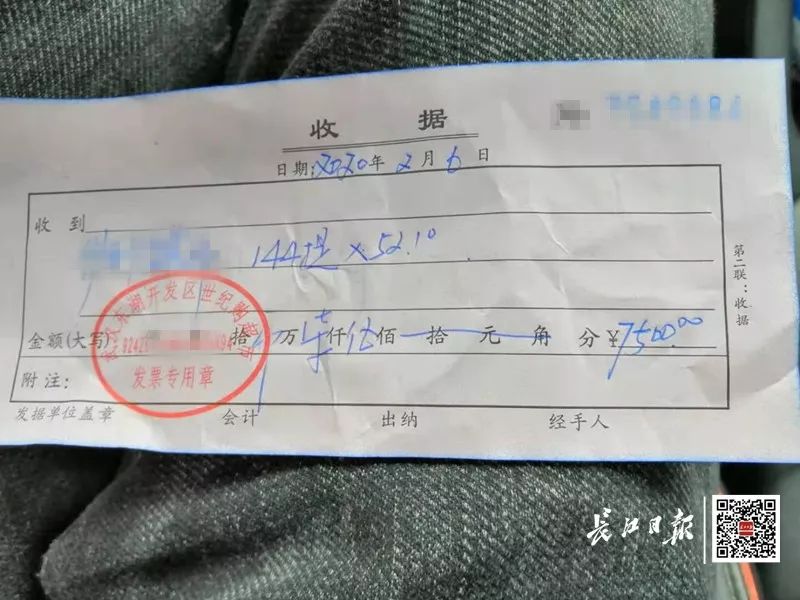 收 据
日期:2020年2月6日
收 到
144提×52.10
金额(大写) 拾 万柒仟伍佰 拾 元 角 分¥7500.00
附注:
发据单位盖章 会计 出纳 经手人
第二联:收据
武汉东湖开发区世纪购
发票专用章
长江日报